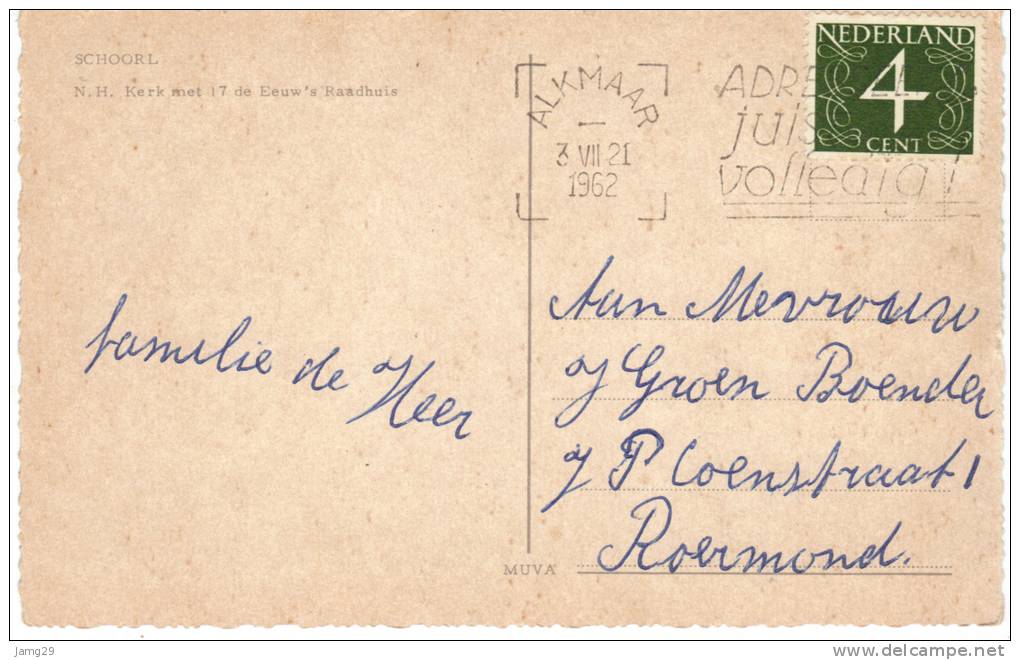 SCHOORL
N.H. Kerk met 17 de Eeuw's Raadhuis
ALKMAAR
3 VII 21
1962
volledig!
NEDERLAND
4
CENT
familie de Heer
Aan Mevrouw
J Groen Boender
J P Coenstraat 1
Roermond.
MUVA
Jamg29
www.delcampe.net